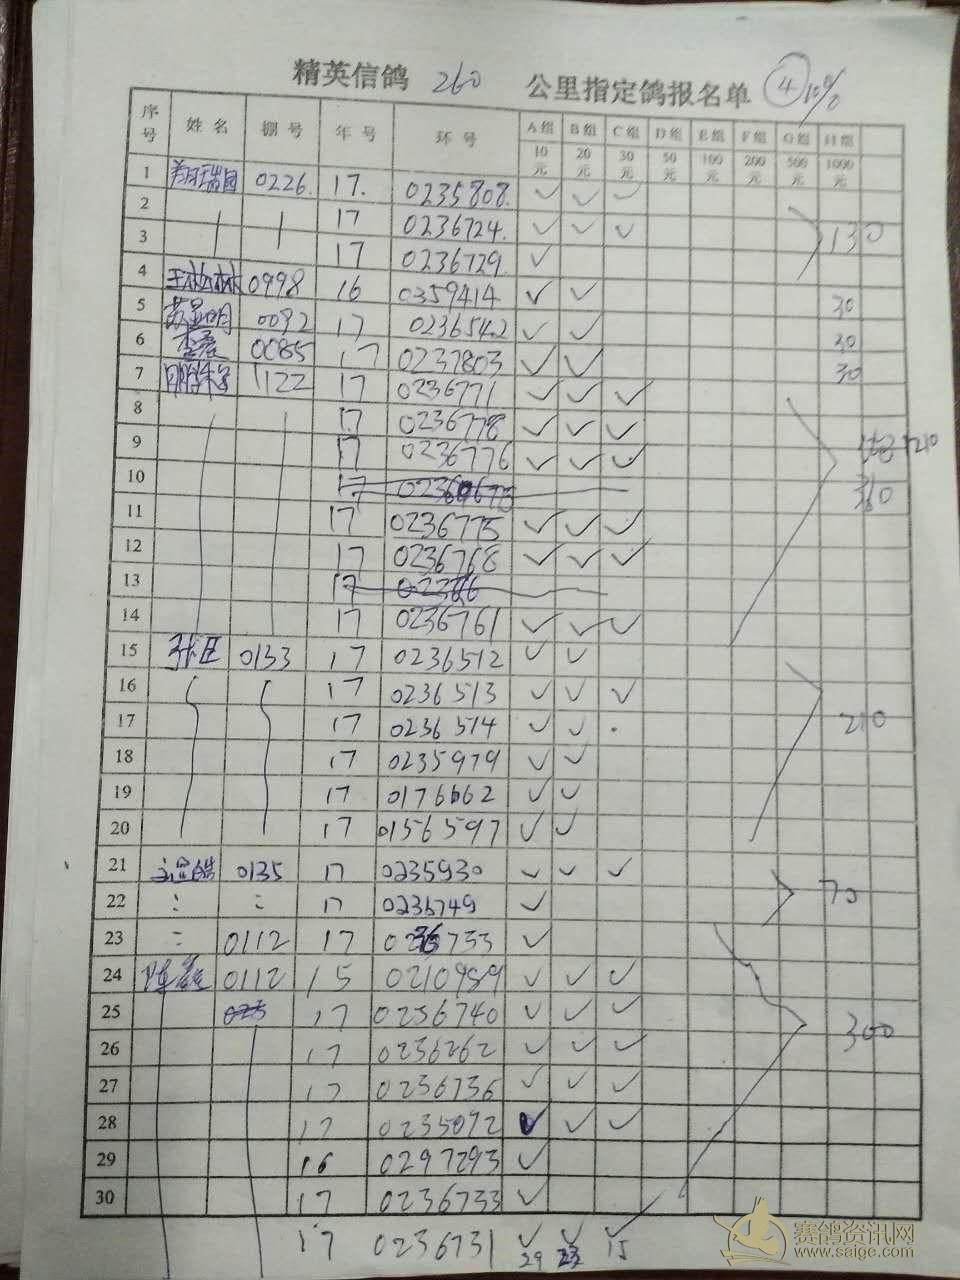 精英信鸽 260 公里指定鸽报名单 ④ 10%
序号 姓名 棚号 年号 环号 A组 B组 C组 D组 E组 F组 G组 H组
10元 20元 30元 50元 100元 200元 500元 1000元
1 翔瑞园 0226. 17. 0235808. ✓ ✓ ✓
2 17 0236724. ✓ ✓ ✓ 130
3 17 0236729. ✓
4 王彬林 0998 16 0359414 ✓ ✓ 30
5 苏显明 0092 17 0236542 ✓ ✓ 30
6 0085 17 0237803 ✓ ✓ 30
7 1122 17 0236771 ✓ ✓ ✓
8 17 0236778 ✓ ✓ ✓
9 17 0236776 ✓ ✓ ✓ 210
10 17 360
11 17 0236775 ✓ ✓ ✓
12 17 0236768 ✓ ✓ ✓
13 17 02366
14 17 0236761 ✓ ✓ ✓
15 张臣 0133 17 0236512 ✓ ✓
16 17 0236513 ✓ ✓ ✓
17 17 0236514 ✓ ✓ . 210
18 17 0235979 ✓ ✓
19 17 0176662 ✓ ✓
20 17 0156597 ✓ ✓
21 0135 17 0235930 ✓ ✓ ✓
22 17 0236749 ✓ 70
23 0112 17 0236733 ✓
24 陈磊 0112 15 0210989 ✓ ✓ ✓
25 17 0236740 ✓ ✓ ✓ 300
26 17 0236262 ✓ ✓ ✓
27 17 0236736 ✓ ✓ ✓
28 17 0235072 ✓ ✓ ✓
29 16 0297293 ✓
30 17 0236733 ✓
17 0236731 ✓ ✓ ✓
29 23 15
赛鸽资讯网
www.saige.com